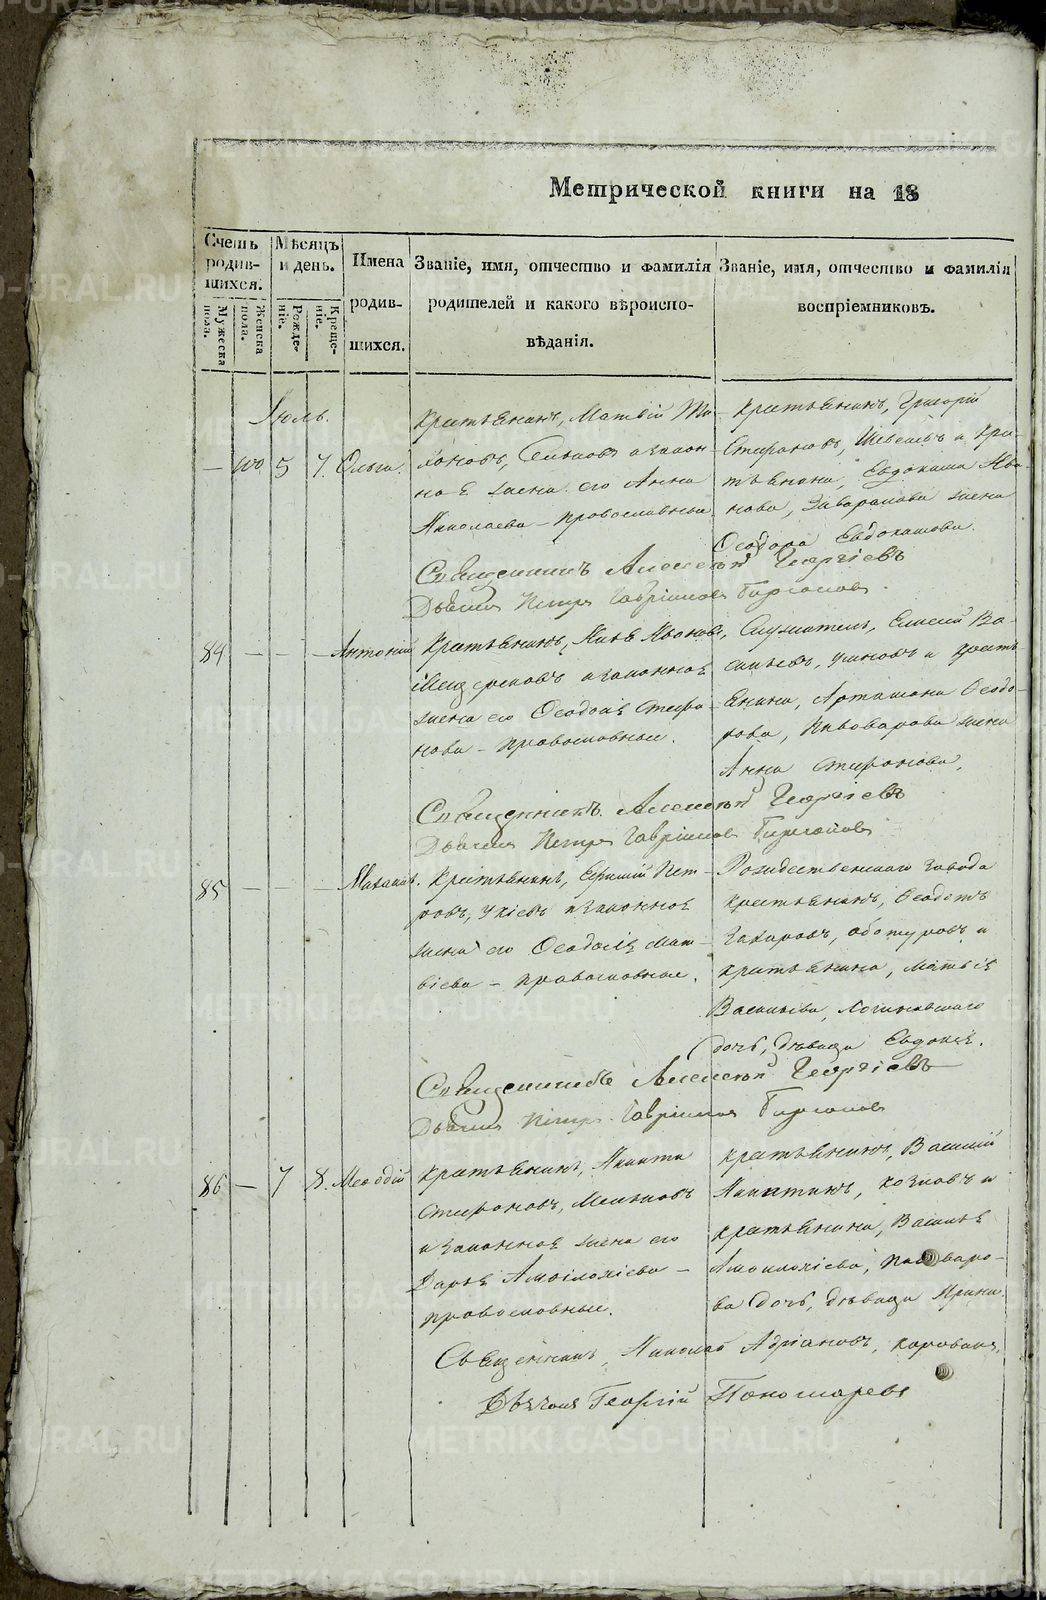 Метрической книги на 18
Счетъ родив-шихся.
Мужеска пола.
Женска пола.
Мѣсяцъ и день.
Рожде-нiе.
Креще-нiе.
Имена родив-шихся.
Званiе, имя, отчество и фамилiя
родителей и какого вѣроиспо-
вѣданiя.
Званiе, имя, отчество и фамилiя
воспрiемниковъ.
Iюль.
— 100 5 7. Ольга.
Крестьянинъ, Матвiй Ти-
хоновъ, а закон-
ная жена его Анна
Николаева – православные
Крестьянинъ, Григорiй
Стефановъ, и кре-
стьянина, Евдокима Ива-
нова, жена
Феодора Евдокимова.
Священникъ Алексѣй Георгiевъ
Дьячекъ Петръ Гаврiиловъ
84 — — — Антонiй
Крестьянинъ, Ивановъ,
и законная
жена его Феодосiя Стефа-
нова – православные.
Служитель, Елисей Ва-
сильевъ, и кресть-
янина, Артамона Феодо-
рова, Пивоварова жена
Анна Стефанова,
Священникъ Алексѣй Георгiевъ
Дьячекъ Петръ Гаврiиловъ
85 — — —
Крестьянинъ, Ефимiй Пет-
ровъ, и законная
жена его Феодосiя Мат-
вiева – православные.
Рождественскаго завода
крестьянинъ, Феодотъ
Захаровъ, и
крестьянина, Матвiя
Васильева,
дочь, дѣвица Евдокiя.
Священникъ Алексѣй Георгiевъ
Дьячекъ Петръ Гаврiиловъ
86 — 7 8. Мефодiй
Крестьянинъ, Никита
Стефановъ, Мельновъ
и законная жена его
Дарья Амфилохiева –
православные.
крестьянинъ, Василiй
Никитинъ, Козловъ и
крестьянина, Василья
Амфилохiева, Пивоваро-
ва дочь, дѣвица Ирина.
Священникъ, Николай Адрiановъ,
Дьячекъ Георгiй Пономаревъ
METRIKI.GASO-URAL.RU